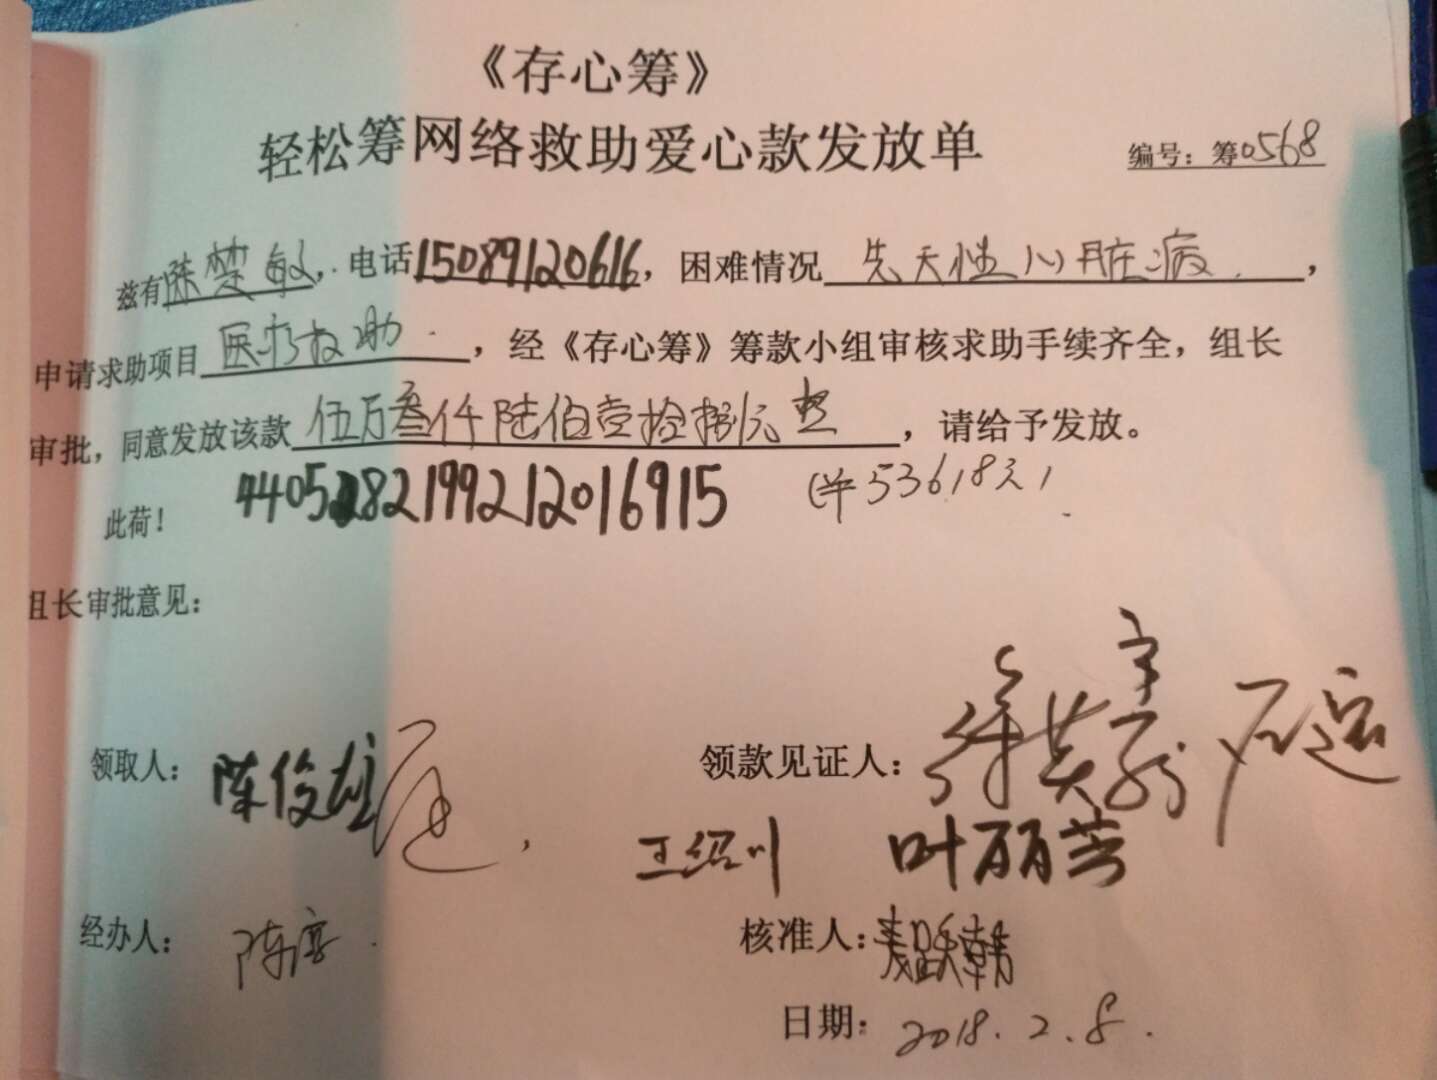 《存心筹》
轻松筹网络救助爱心款发放单
编号：筹0568
兹有陈楚敏，电话15089120616，困难情况先天性心脏病，
申请求助项目医疗救助，经《存心筹》筹款小组审核求助手续齐全，组长
审批，同意发放该款伍万叁仟陆佰壹拾捌元整，请给予发放。
此荷！ 4405282199212016915 (¥53618元)
组长审批意见：
领取人：陈俊雄 领款见证人：
王绍川 叶丽芸
经办人： 核准人：
日期：2018.2.8.